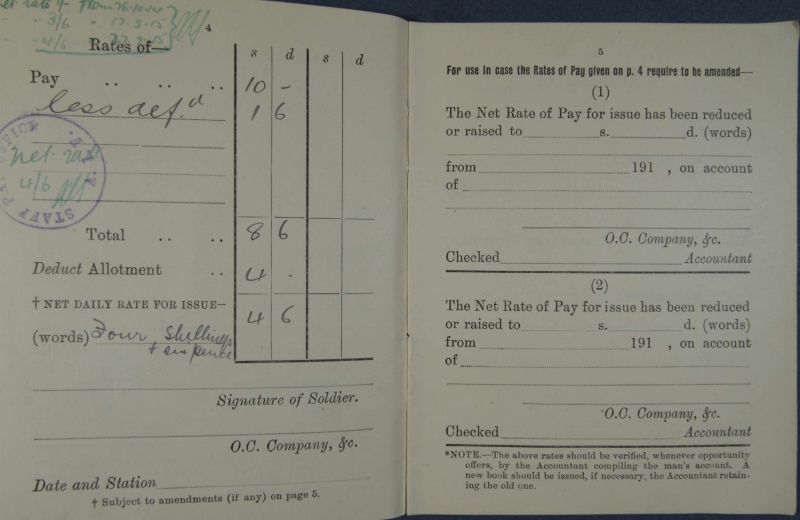 4
Net rate
- 3/6 " 17.5.15
- 4/6
Rates of—
s d s d
Pay .. .. .. 10 –
less def.d 1 6
STAFF PAY OFFICE
Net rate
4/6
Total .. .. 8 6
Deduct Allotment .. 4 .
† NET DAILY RATE FOR ISSUE— 4 6
(words) Four Shillings
+ six pence
Signature of Soldier.
O.C. Company, &c.
Date and Station
† Subject to amendments (if any) on page 5.
5
For use in case the Rates of Pay given on p. 4 require to be amended—
(1)
The Net Rate of Pay for issue has been reduced
or raised to s. d. (words)
from 191 , on account
of
O.C. Company, &c.
Checked Accountant
(2)
The Net Rate of Pay for issue has been reduced
or raised to s. d. (words)
from 191 , on account
of
O.C. Company, &c.
Checked Accountant
*NOTE.—The above rates should be verified, whenever opportunity
offers, by the Accountant compiling the man's account. A
new book should be issued, if necessary, the Accountant retain-
ing the old one.